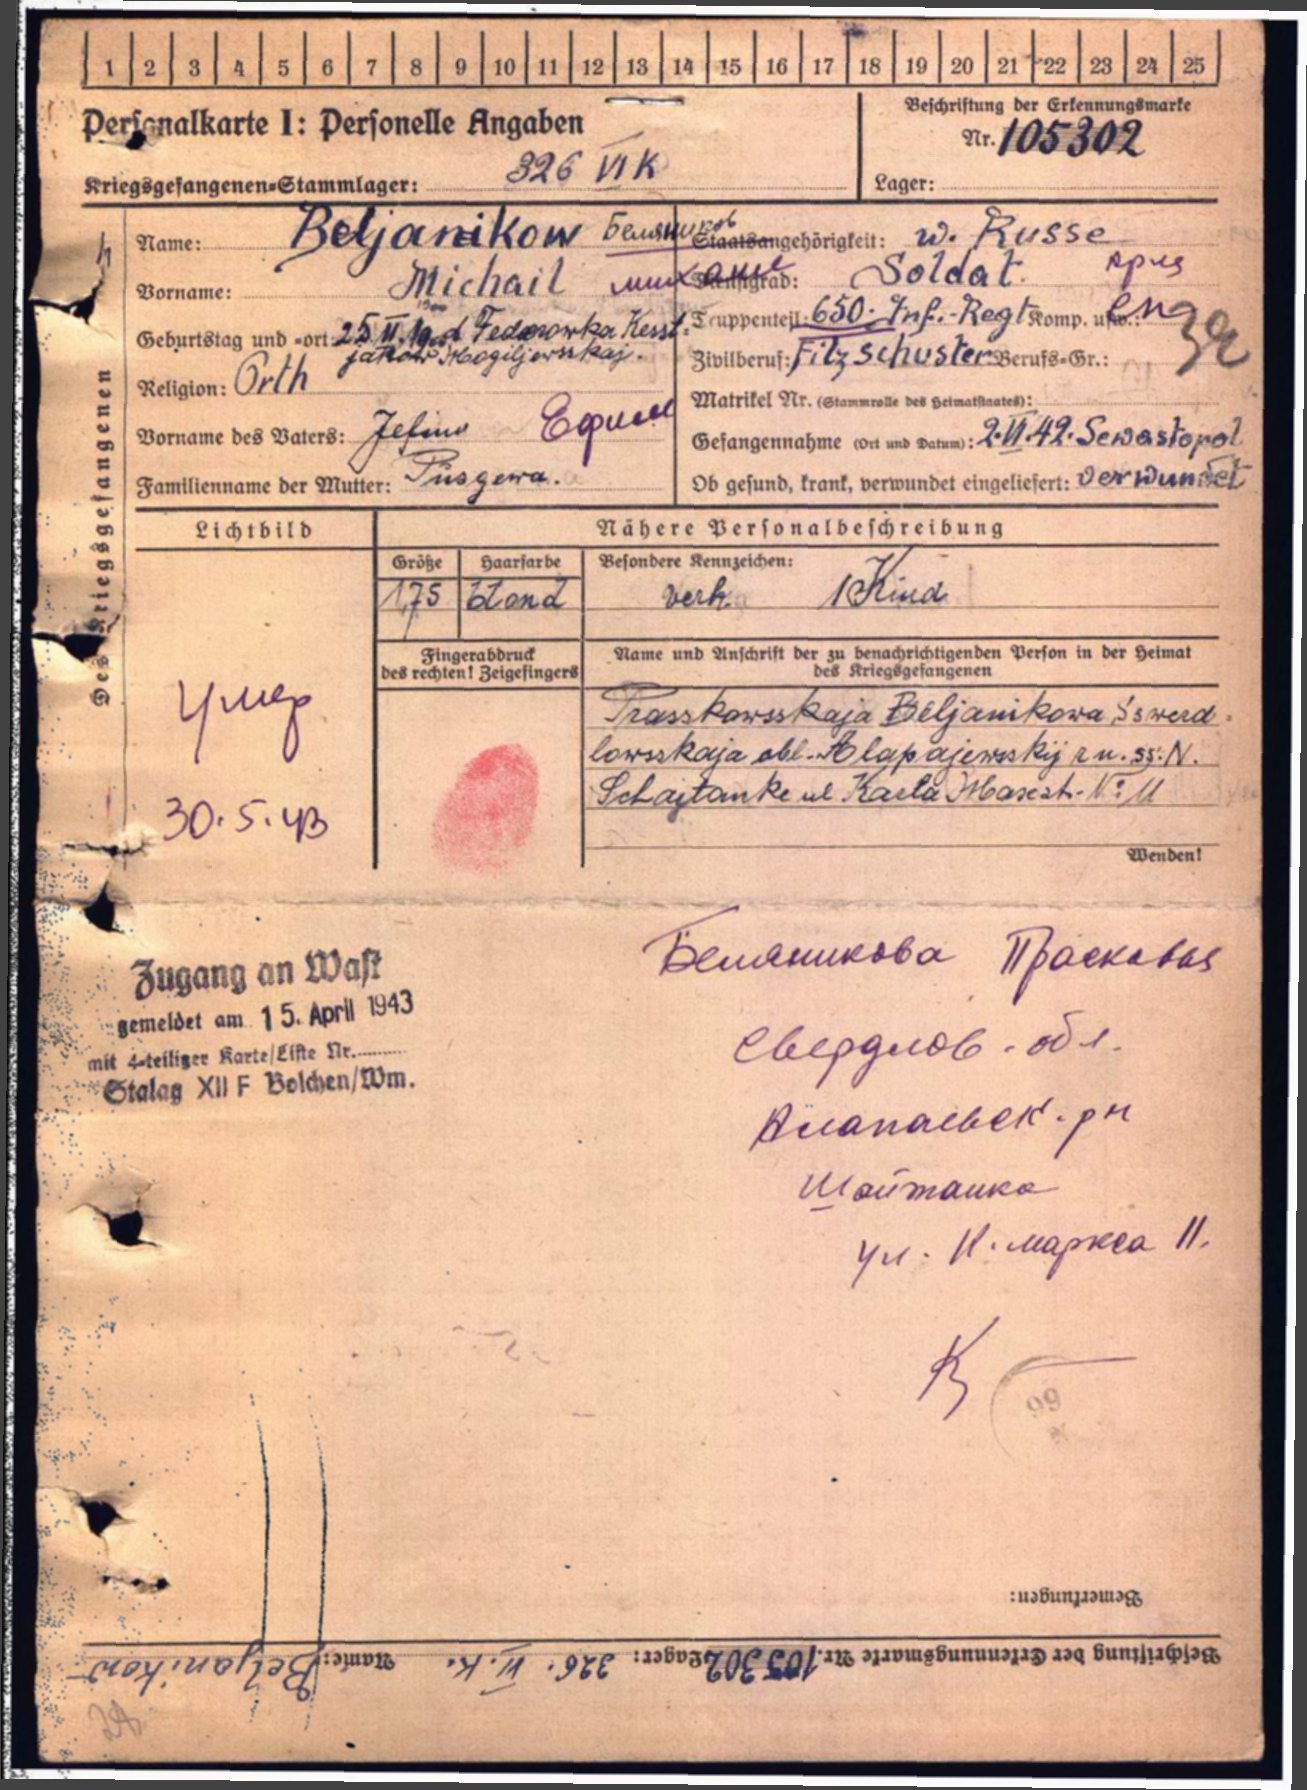 1 2 3 4 5 6 7 8 9 10 11 12 13 14 15 16 17 18 19 20 21 22 23 24 25
Personalkarte I: Personelle Angaben
Kriegsgefangenen=Stammlager: 326 VI K
Beschriftung der Erkennungsmarke
Nr. 105302
Lager:
Des Kriegsgefangenen
Name: Beljanikow Беляников
Vorname: Michail михаил
Geburtstag und =ort: 25.II. Fedorowka
Mogiljewskaj.
Religion: Orth
Vorname des Vaters: Jefim Ефим
Familienname der Mutter:
Staatsangehörigkeit: w. Russe
Dienstgrad: Soldat.
Truppenteil: 650. Inf.-Regt Komp. usw.:
Zivilberuf: Filzschuster Berufs=Gr.:
Matrikel Nr. (Stammrolle des Heimatstaates):
Gefangennahme (Ort und Datum): 2.VI.42. Sewastopol
Ob gesund, krank, verwundet eingeliefert: verwundet
Lichtbild
Nähere Personalbeschreibung
Größe Haarfarbe Besondere Kennzeichen:
1,75 blond verh. 1 Kind
Fingerabdruck
des rechten! Zeigefingers
Name und Anschrift der zu benachrichtigenden Person in der Heimat
des Kriegsgefangenen
Prasskowsskaja Beljanikowa, Sswerd-
lowsskaja obl. Alapajewsskij
Schajtanke ul Karla
Wenden!
Умер
30.5.43
Zugang an Wast
gemeldet am 15. April 1943
mit 4=teiliger Karte/Liste Nr.
Stalag XII F Bolchen/Wm.
Беляникова Прасковья
Свердлов. обл.
Алапаевск. рн
Шайтанка
ул. К. маркса 11.
Bemerkungen:
Beschriftung der Erkennungsmarke Nr. 105302 Lager: 326. VI. K. Name: Beljanikow